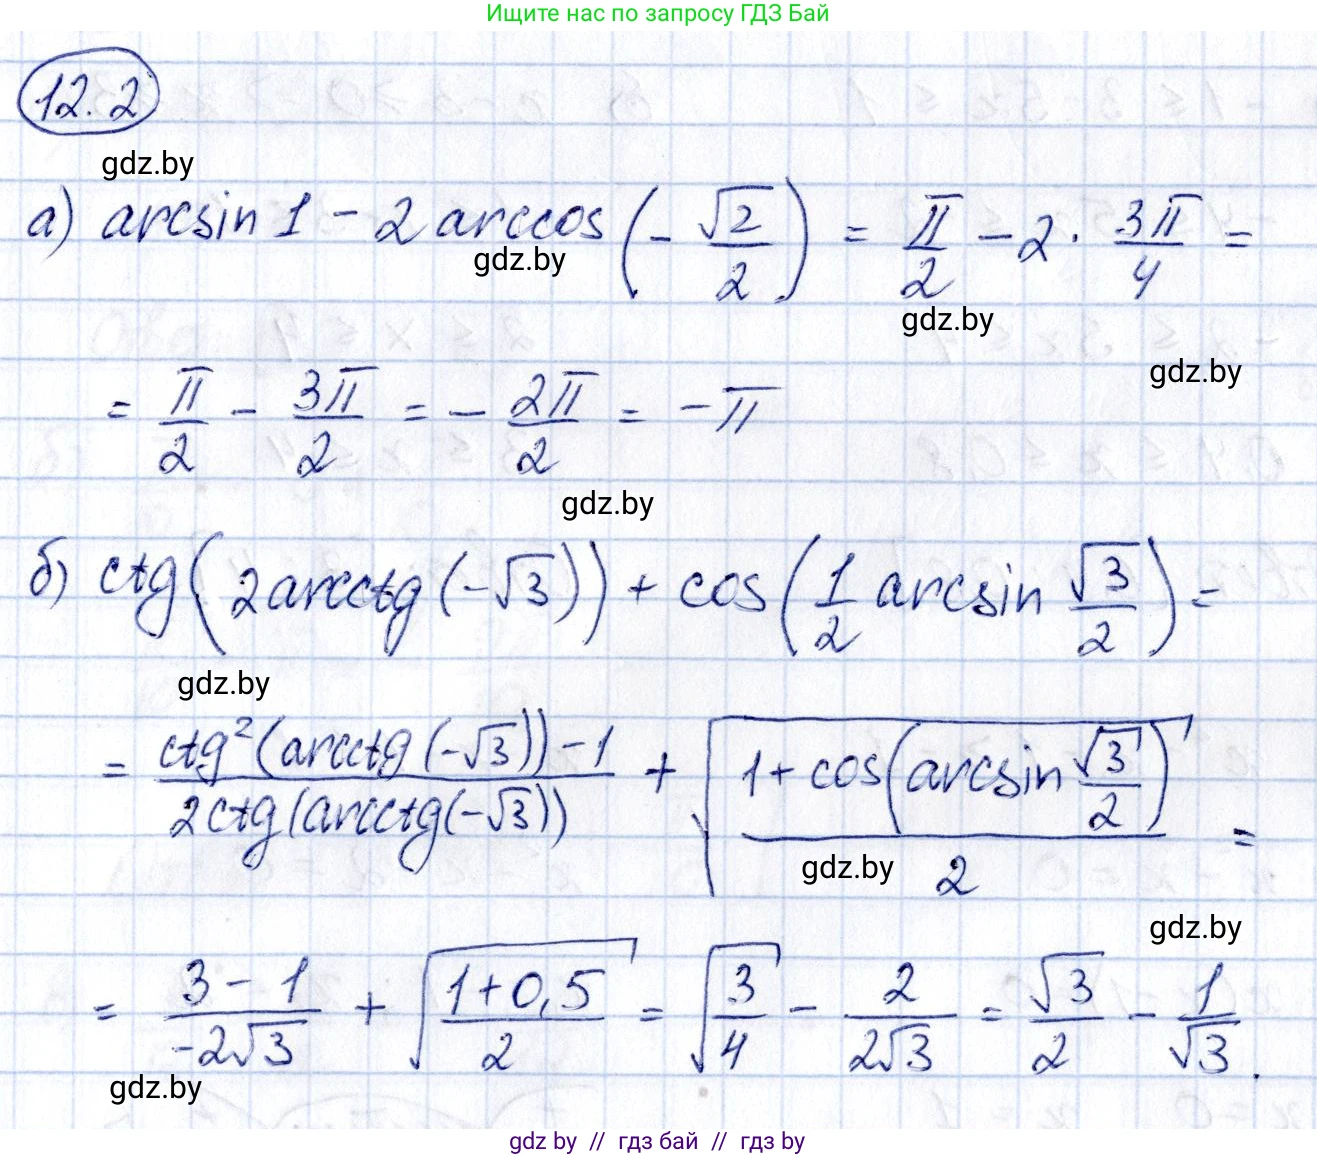 Ищите нас по запросу ГДЗ Бай
12.2
gdz.by
а) arcsin 1 - 2 arccos (- √2/2) = π/2 - 2 · 3π/4 =
gdz.by
gdz.by
gdz.by
= π/2 - 3π/2 = - 2π/2 = - π
gdz.by
б) ctg(2arcctg(-√3)) + cos(1/2 arcsin √3/2) =
gdz.by
= (ctg²(arcctg(-√3)) - 1)/(2ctg(arcctg(-√3))) + √((1 + cos(arcsin √3/2))/2) =
gdz.by
gdz.by
= (3 - 1)/(-2√3) + √((1+0,5)/2) = √(3/4) - 2/(2√3) = √3/2 - 1/√3.
gdz.by
gdz by // гдз бай // гдз by